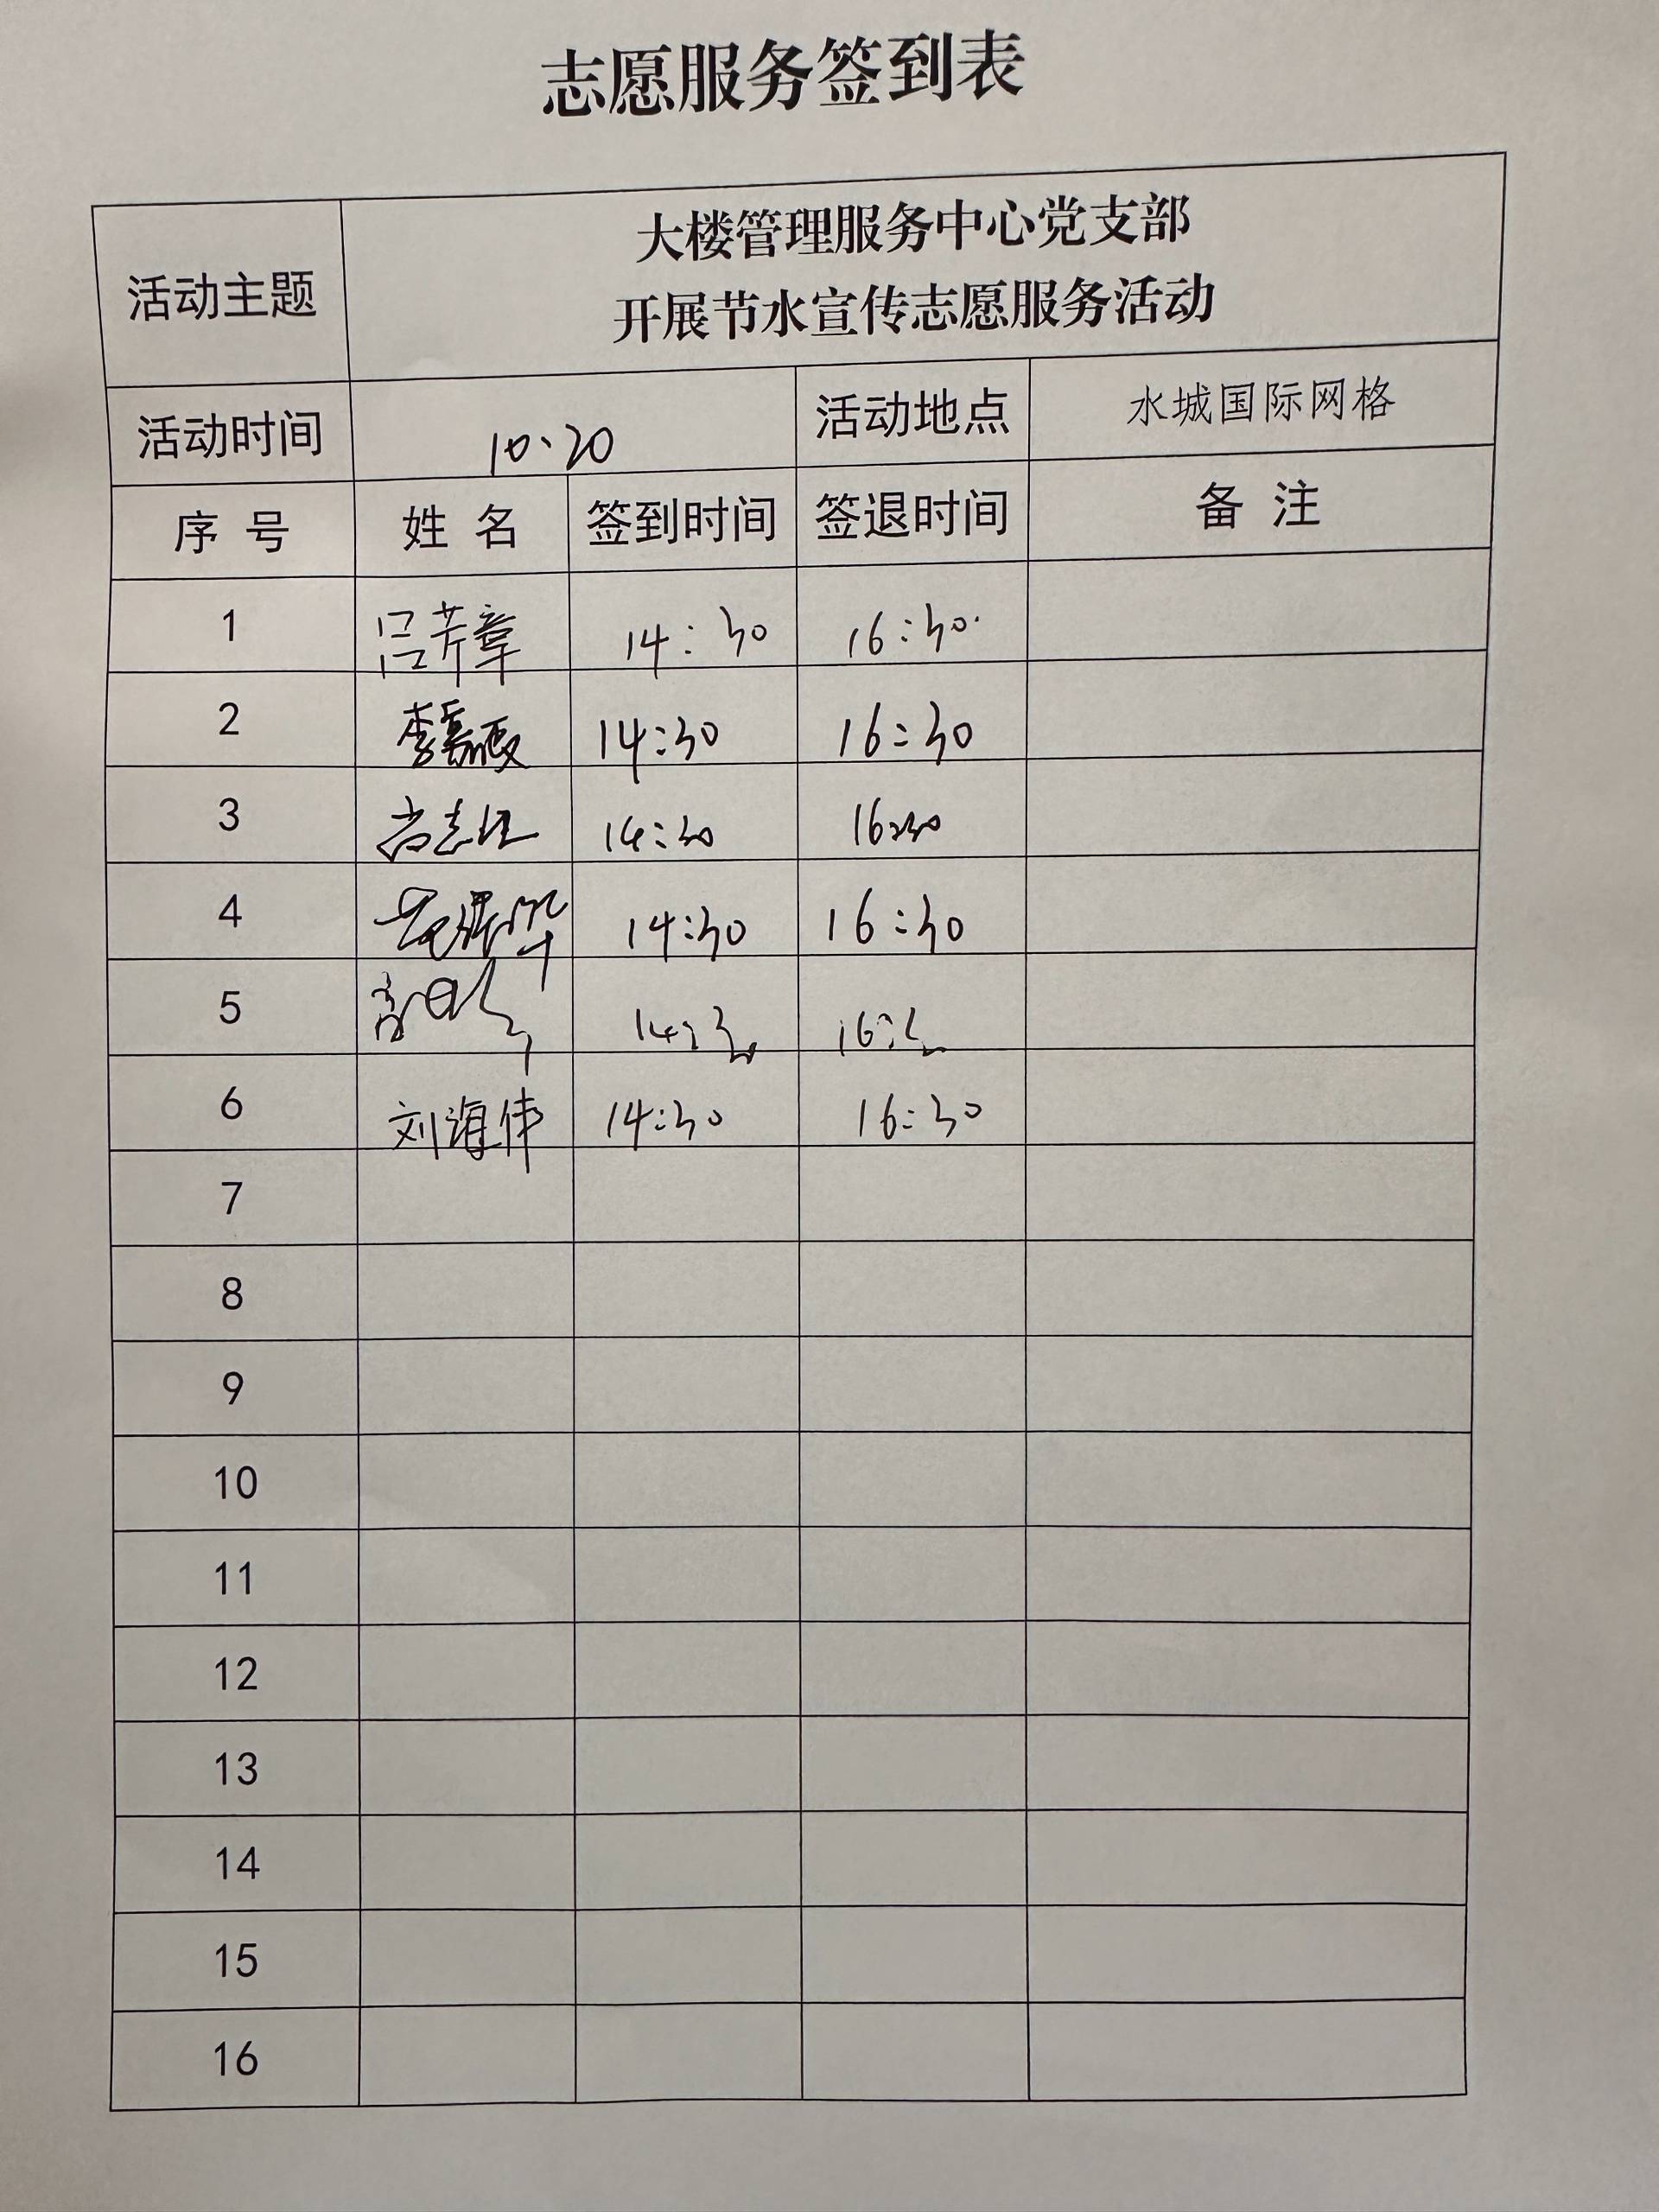 志愿服务签到表
活动主题
大楼管理服务中心党支部
开展节水宣传志愿服务活动
活动时间 10.20 活动地点 水城国际网格
序号 姓名 签到时间 签退时间 备注
1 吕芳章 14:30 16:30
2 李 14:30 16:30
3 尚志 14:30 16:30
4 14:30 16:30
5 14:30 16:30
6 刘海伟 14:30 16:30
7
8
9
10
11
12
13
14
15
16